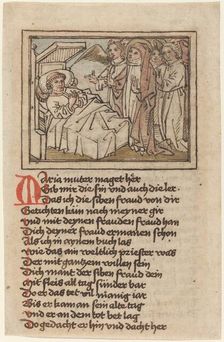 Maria muter maget her
Gib mir die sin und auch die ler
Das ich die siben fraud von dir
Getichten kun nach meyner gir
Und mit deynen frauden fraud han
Dich deyner fraud ermanen schon
Als ich in eynem buch las
Wie das ain weltlich priester was
Der mit gantzem willen sein
Dich mant der siben fraud dein
Mit fleis all tag sunder bar
Er er das tet vil manig iar
Bis er kam an sein alte tag
Und er an dem tot bet lag
Do gedacht er hin und dacht her